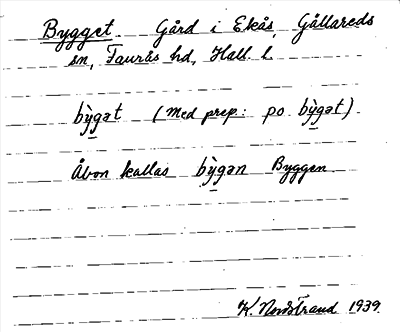 Bygget. Gård i Ekås, Gällareds
sn, Faurås hd, Hall. l.
bỳgət (Med prep.: po bỳgət)
Åbon kallas bỳgən Byggen.
K. Nordstrand 1939.